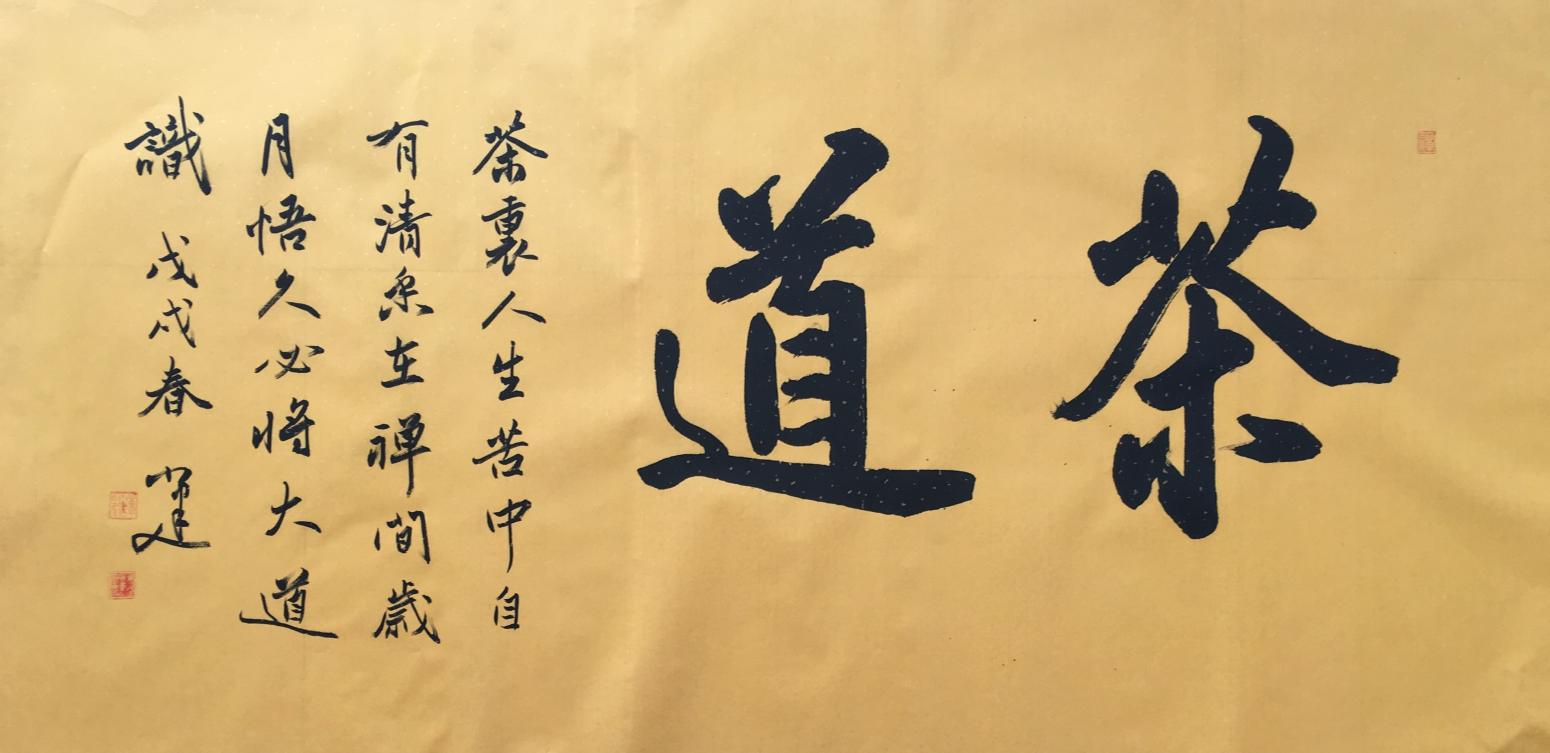 茶道
茶裏人生苦中自
有清泉在禅間歲
月悟久必將大道
識 戊戌春